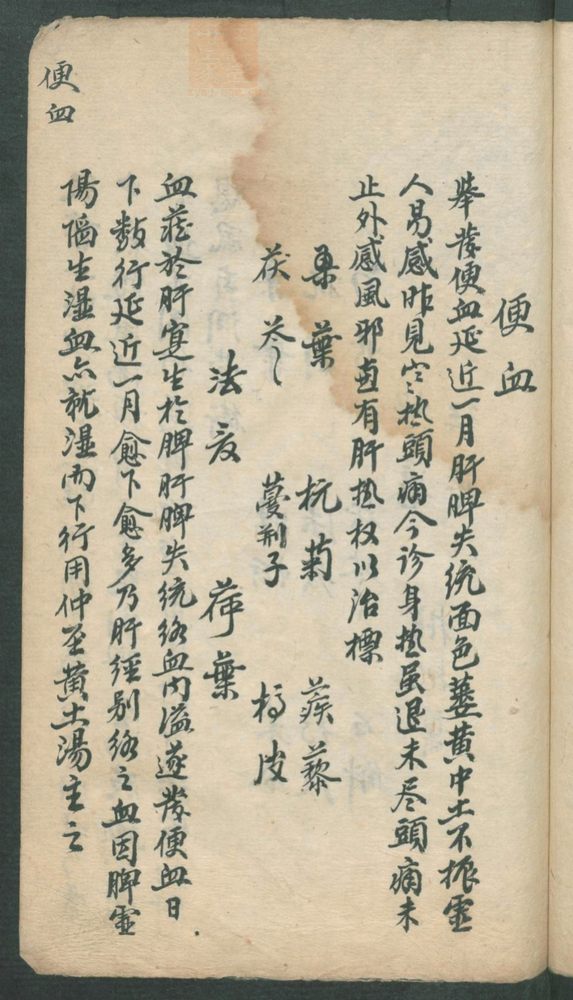 便血
舉發便血延近一月肝脾失统面色萎黄中土不振虚
人易感昨見寒热頭痛今诊身热虽退未尽頭痛未
止外感風邪卣有肝热权以治標
桑葉 杭菊 蒺藜
茯苓 蔓荆子 橘皮
法夏 荷葉
血莊於肝寔生於脾肝脾失统络血内溢遂發便血日
下数行延近一月愈下愈多乃肝經别络之血因脾虚
陽陷生湿血亦就湿而下行用仲圣黄土湯主之
便血